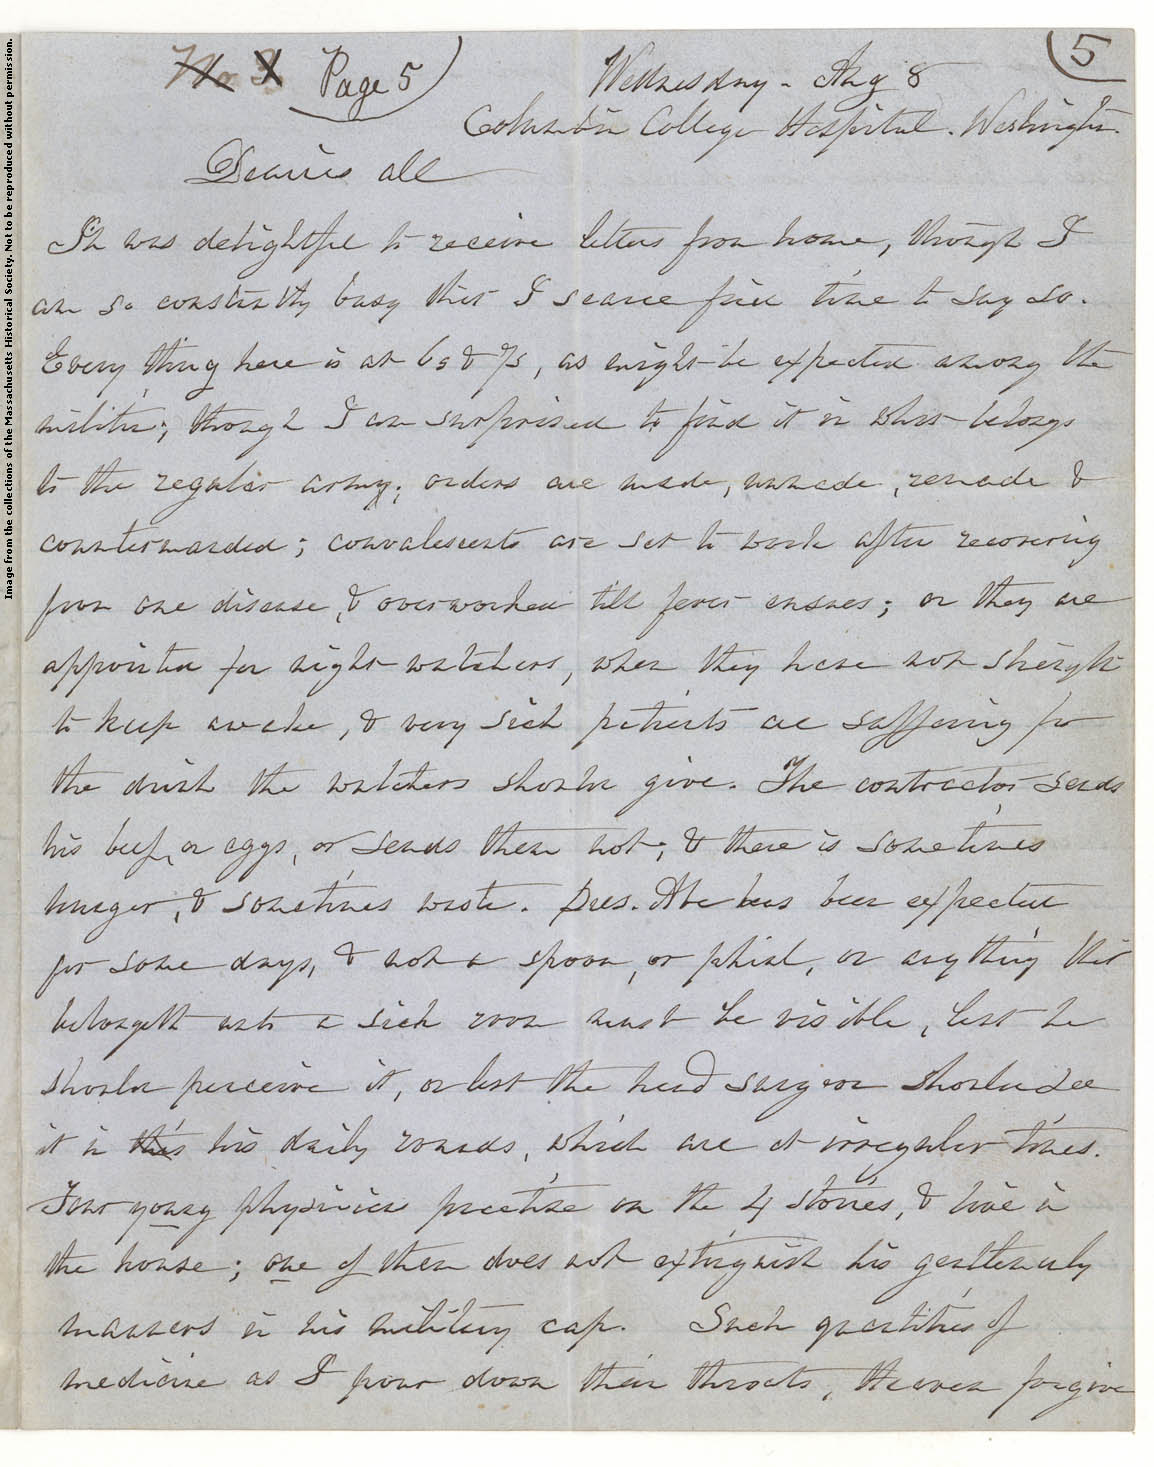 Image from the collections of the Massachusetts Historical Society. Not to be reproduced without permission.
Page 5
5
Wednesday - Aug 8
Columbia College Hospital. Washington.
Dearies all
It was delightful to receive letters from home, though I
am so constantly busy that I scarce find time to say so.
Every thing here is at 6s & 7s, as might be expected among the
militia; though I am surprised to find it in what belongs
to the regular army; orders are made, unmade, remade &
countermanded; convalescents are set to work after recovering
from one disease, & overworked till fever ensues; or they are
appointed for night-watchers, when they have not strength
to keep awake, & very sick patients are suffering for
the drink the watchers should give. The contractor sends
his beef, or eggs, or sends them not; & there is sometimes
hunger, & sometimes waste. Pres. Abe has been expected
for some days, & not a spoon, or phial, or any thing that
belongeth unto a sick room must be visible, lest he
should perceive it, or lest the head surgeon should see
it in this his daily rounds, which are at irregular times.
Four young physicians practise on the 4 stories, & live in
the house; one of them does not extinguish his gentlemanly
manners in his military cap. Such quantities of
medicine as I pour down their throats, Heaven forgive